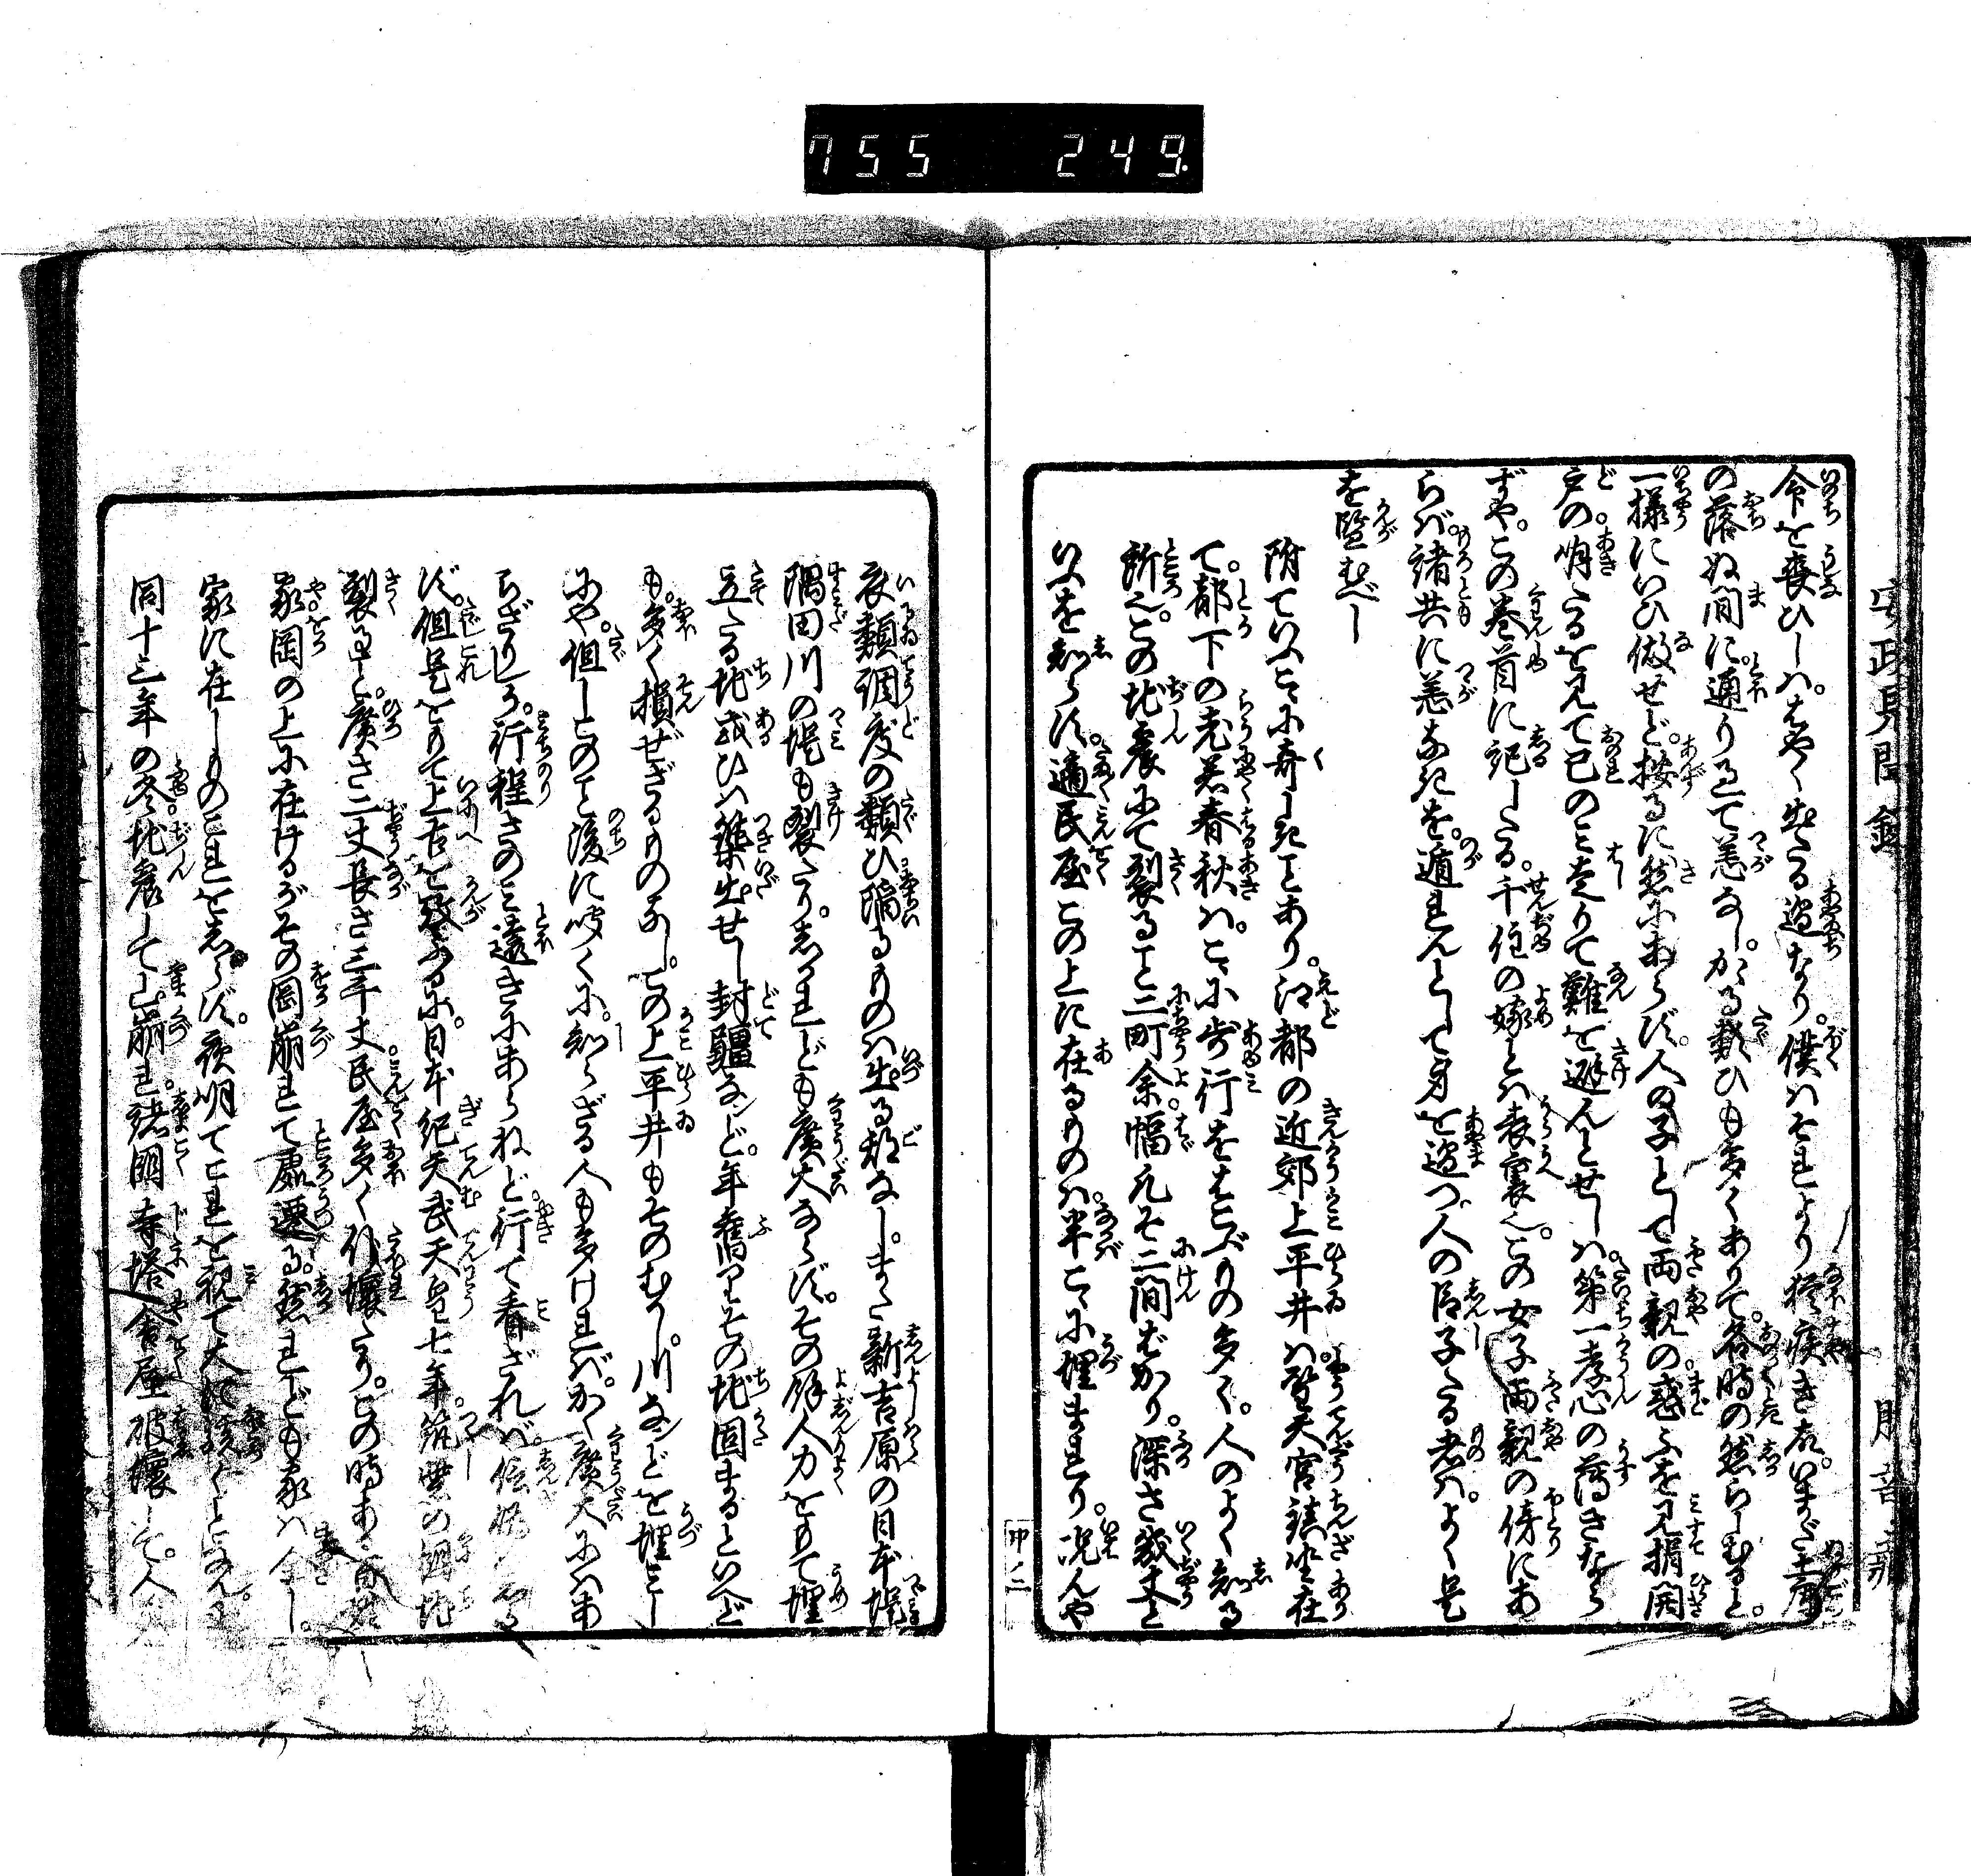 755 249.
安政見聞録
命を喪ひしハ。はやく出たる過なり。僕ハそれより猶疾き故。いまだ土庫
の落ぬ間に。通りて恙なし。かゝる類ひも多くありて。各時の然らしむると。
一様にいひ做せど。按るに然にあらず。人の子として両親の。惑ふを見捐開
戸の。明たるを見て已のミ走りて難を避んとせしハ。第一孝心の薄きなら
ずや。この巻首に記したる。千住の嫁とハ表裏也。この女子両親の傍にあ
らバ。諸共に恙なきを。遁れんとして身を過つ。人の臣子たる者ハ。よく是
を鑒むべし
附ていふこゝに奇しきことあり。江都の近郊上平井ハ。聖天宮鎮坐在
て。都下の老若春秋ハ。こゝに歩行をはこぶもの多く。人のよく知る
所也。この地震にて裂ること二町余。幅凡そ二間ばかり。深さ幾丈と
いふを知らず。適民屋この上に在るものハ。半こゝに埋まれり。况んや
衣類調度の類ひ陥るものハ出る期なし。また新吉原の日本堤
隅田川の堤も裂たり。しかれども廣大ならず。その餘人力をもて埋
立たる地或ひハ築出せし封疆など。年舊りその地固まるといへど
も。多く損ぜざるものなし。この上平井もそのむかし。川などを埋し
にや。但しこのこと後に聞くに。知らざる人も多けれバ。かく廣大にハあ
らざりしか。行程さのミ遠きにあらねど。行て看ざれバ。信偽
ず。但是をもて上古を鑒ふるに。日本紀天武天皇七年。筑紫の国地
裂ること。廣さ二丈長さ三千丈民屋多く仆壊たり。この時ある百姓
家岡の上に在けるがその岡崩れて處遷る。然れども家ハ全し。
家に在しものこれをしらず。夜明てこれを視て大に驚くとなん。又
同十三年の冬地震して山崩れ。諸国寺塔舎屋破壊して。人